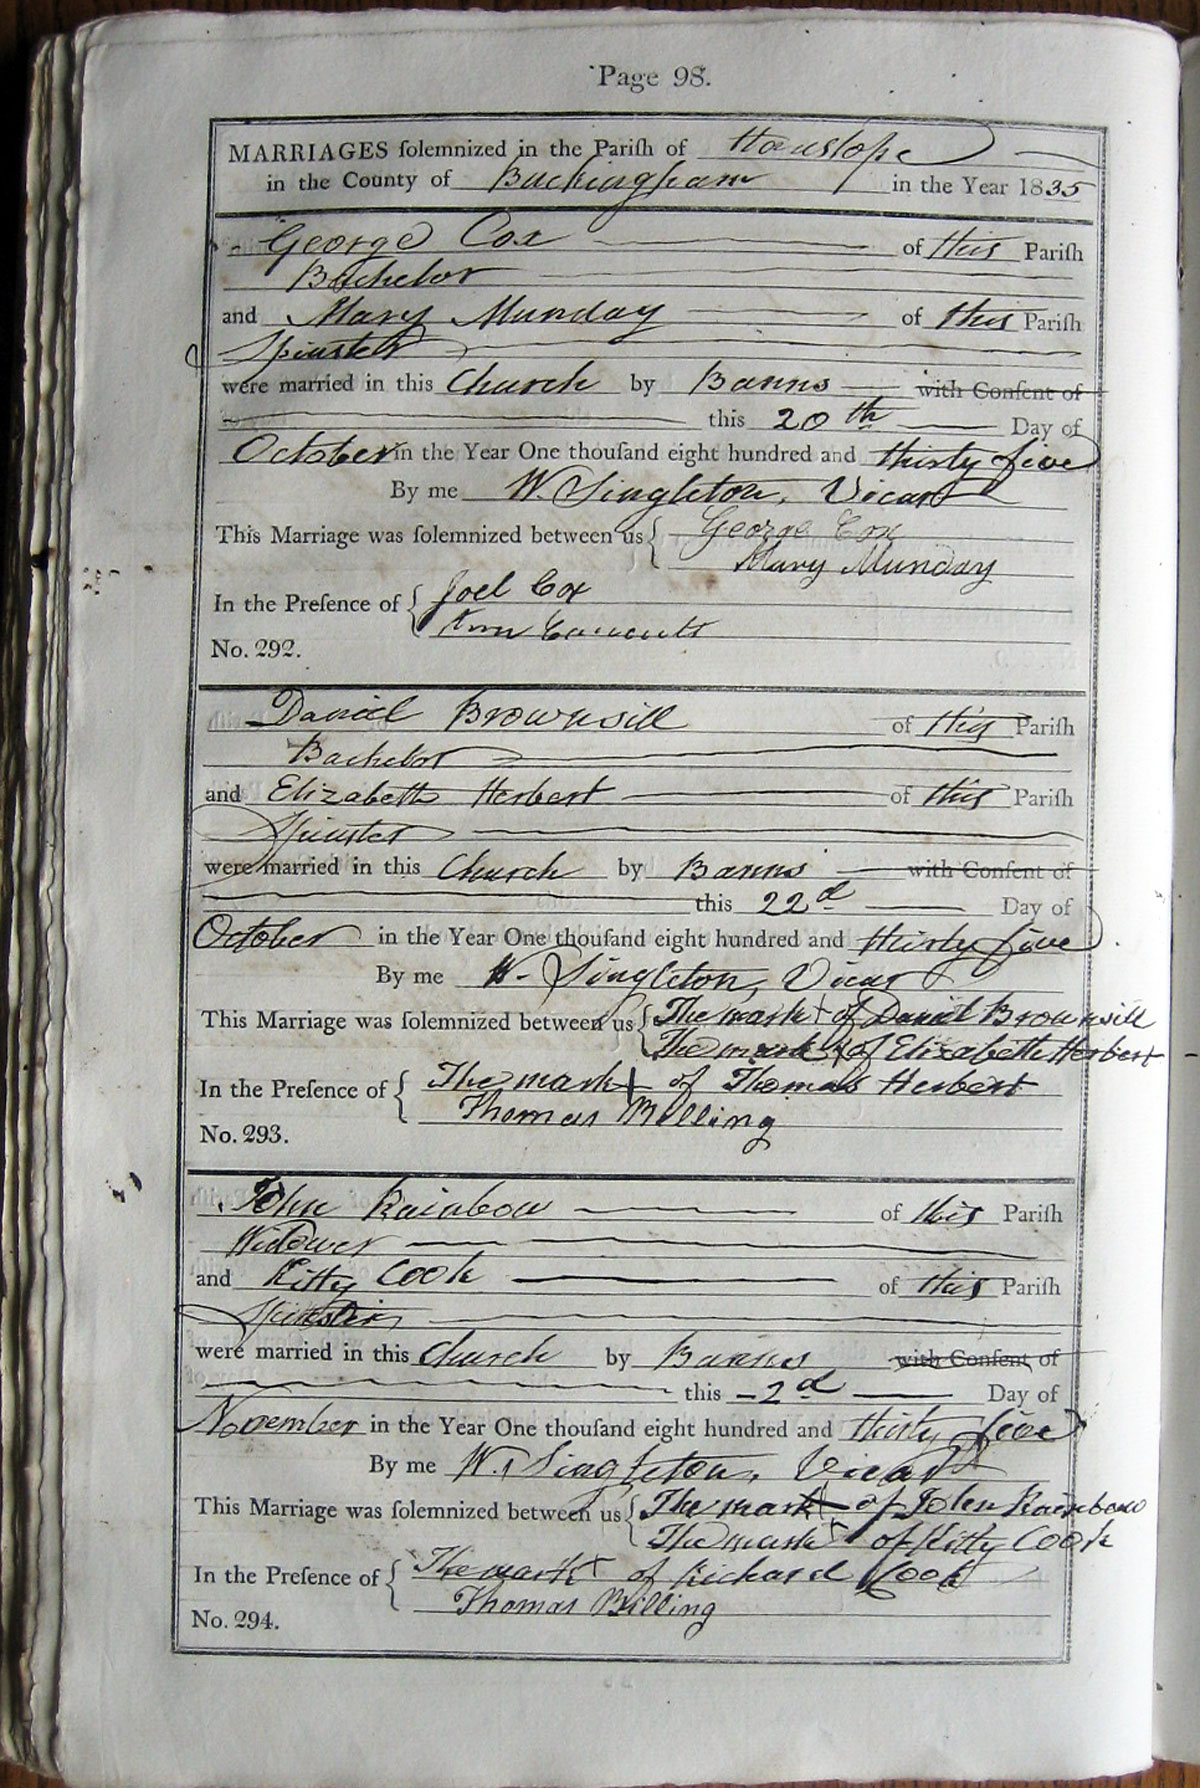 Page 98.
MARRIAGES ſolemnized in the Pariſh of Hanslope
in the County of Buckingham in the Year 1835
George Cox of this Pariſh
Bachelor
and Mary Munday of this Pariſh
Spinster
were married in this Church by Banns with Conſent of
this 20th Day of
October in the Year One thouſand eight hundred and thirty five
By me W. Singleton, Vicar
This Marriage was ſolemnized between us { George Cox
Mary Munday
In the Preſence of { Joel Cox
No. 292.
Daniel Brownsill of this Pariſh
Bachelor
and Elizabeth Herbert of this Pariſh
Spinster
were married in this Church by Banns with Conſent of
this 22d Day of
October in the Year One thouſand eight hundred and thirty five
By me W. Singleton, Vicar
This Marriage was ſolemnized between us { The mark + of Daniel Brownsill
The mark + of Elizabeth Herbert
In the Preſence of { The mark + of Thomas Herbert
Thomas Billing
No. 293.
John Rainbow of this Pariſh
Widower
and Kitty Cook of this Pariſh
Spinster
were married in this Church by Banns with Conſent of
this 2d Day of
November in the Year One thouſand eight hundred and thirty five
By me W. Singleton, Vicar
This Marriage was ſolemnized between us { The mark + of John Rainbow
The mark + of Kitty Cook
In the Preſence of { The mark + of Richard Cook
Thomas Billing
No. 294.